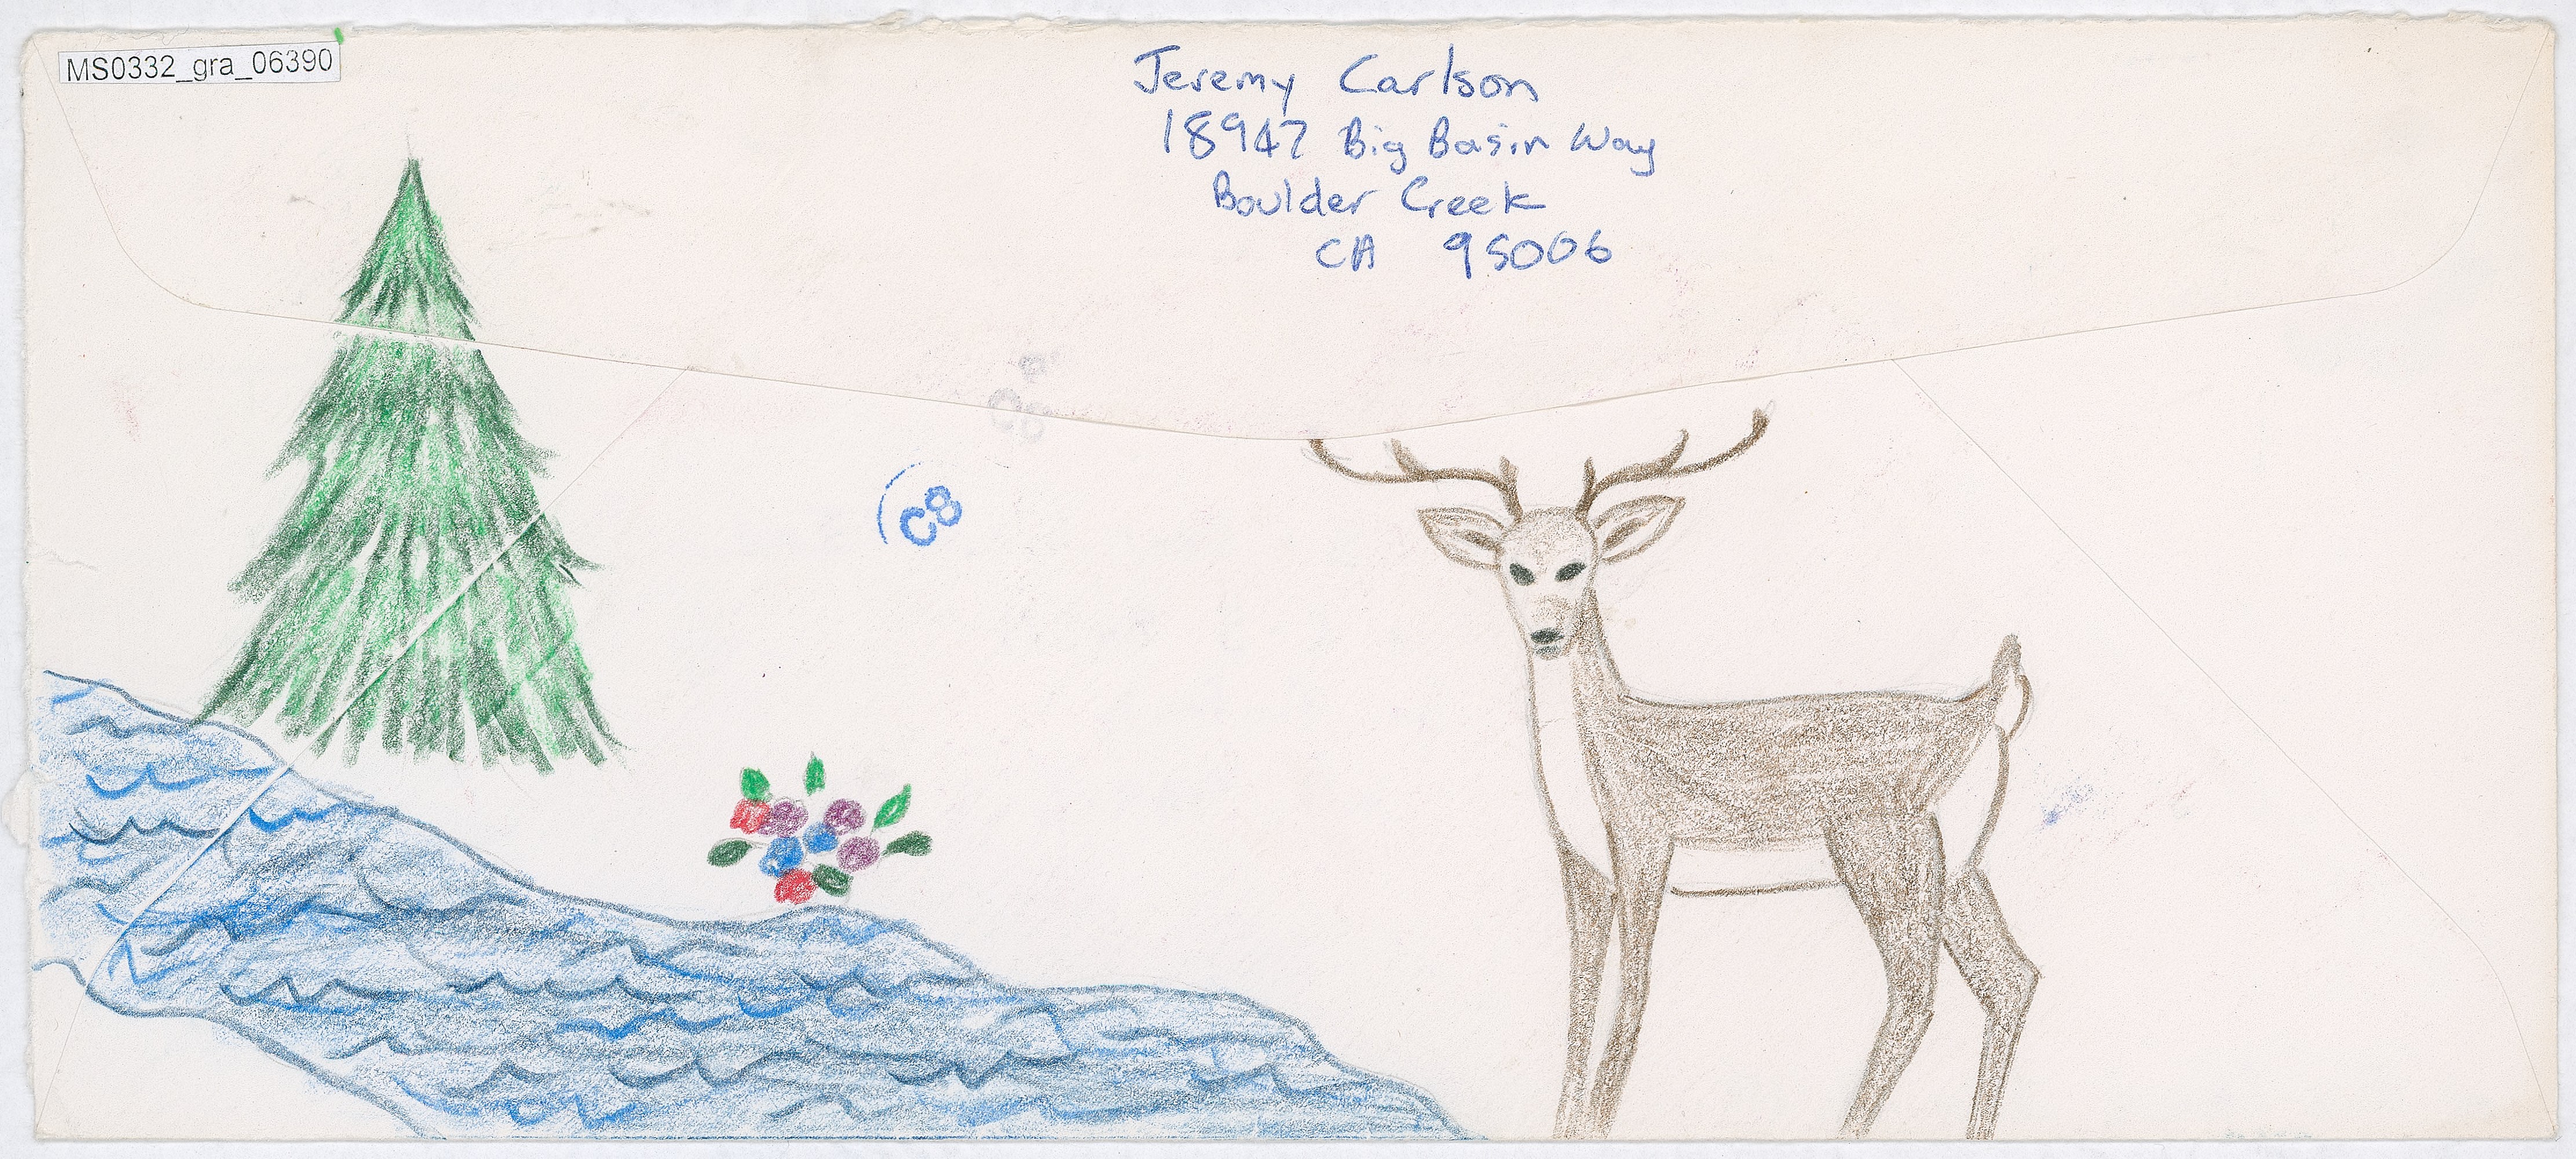 MS0332_gra_06390
Jeremy Carlson
18947 Big Basin Way
Boulder Creek
CA 95006
C8
C8